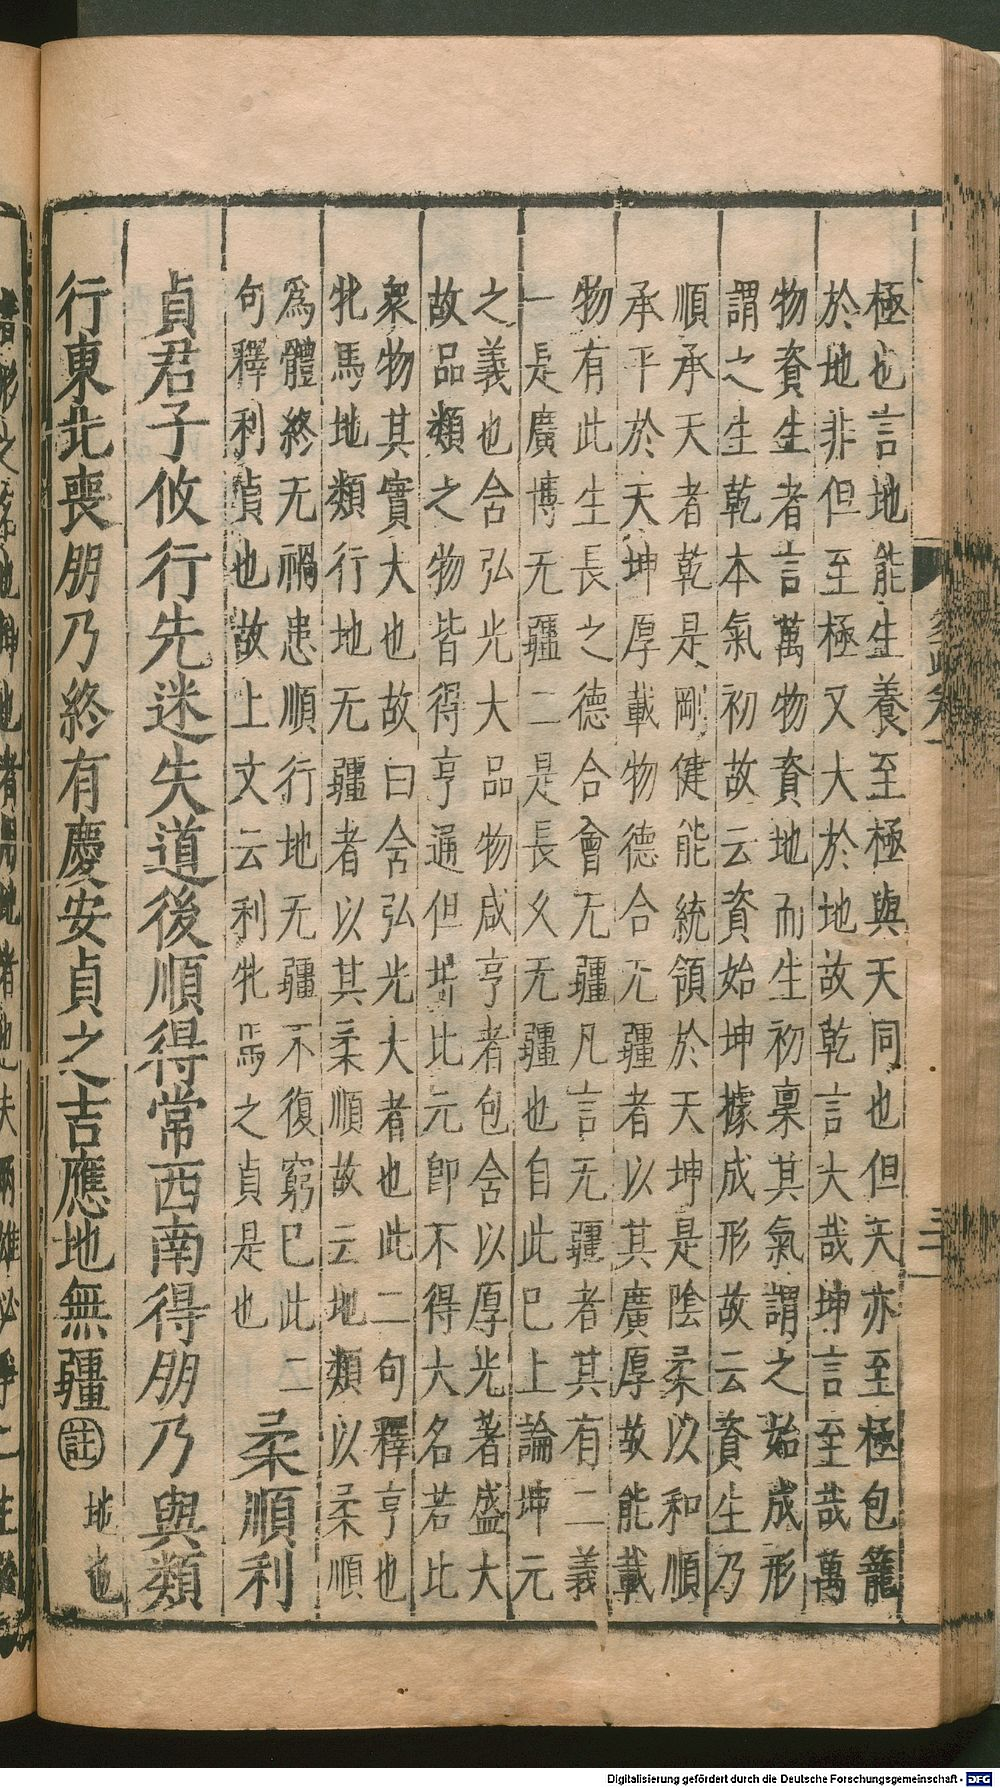 極也言地能生養至極與天同也但天亦至極包籠
於地非但至極又大於地故乾言大哉坤言至哉萬
物資生者言萬物資地而生初稟其氣謂之始成形
謂之生乾本氣初故云資始坤據成形故云資生乃
順承天者乾是剛健能統領於天坤是陰柔以和順
承平於天坤厚載物德合无疆者以其廣厚故能載
物有此生長之德合會无疆凡言无疆者其有二義
一是廣博无疆二是長久无疆也自此已上論坤元
之義也含弘光大品物咸亨者包含以厚光著盛大
故品類之物皆得亨通但坤比元即不得大名若比
衆物其實大也故曰含弘光大者也此二句釋亨也
牝馬地類行地无疆者以其柔順故云地類以柔順
爲體終无禍患順行地无疆不復窮已此二
句釋利貞也故上文云利牝馬之貞是也
柔順利
貞君子攸行先迷失道後順得常西南得朋乃與類
行東北喪朋乃終有慶安貞之吉應地無疆註
地也
Digitalisierung gefördert durch die Deutsche Forschungsgemeinschaft - DFG